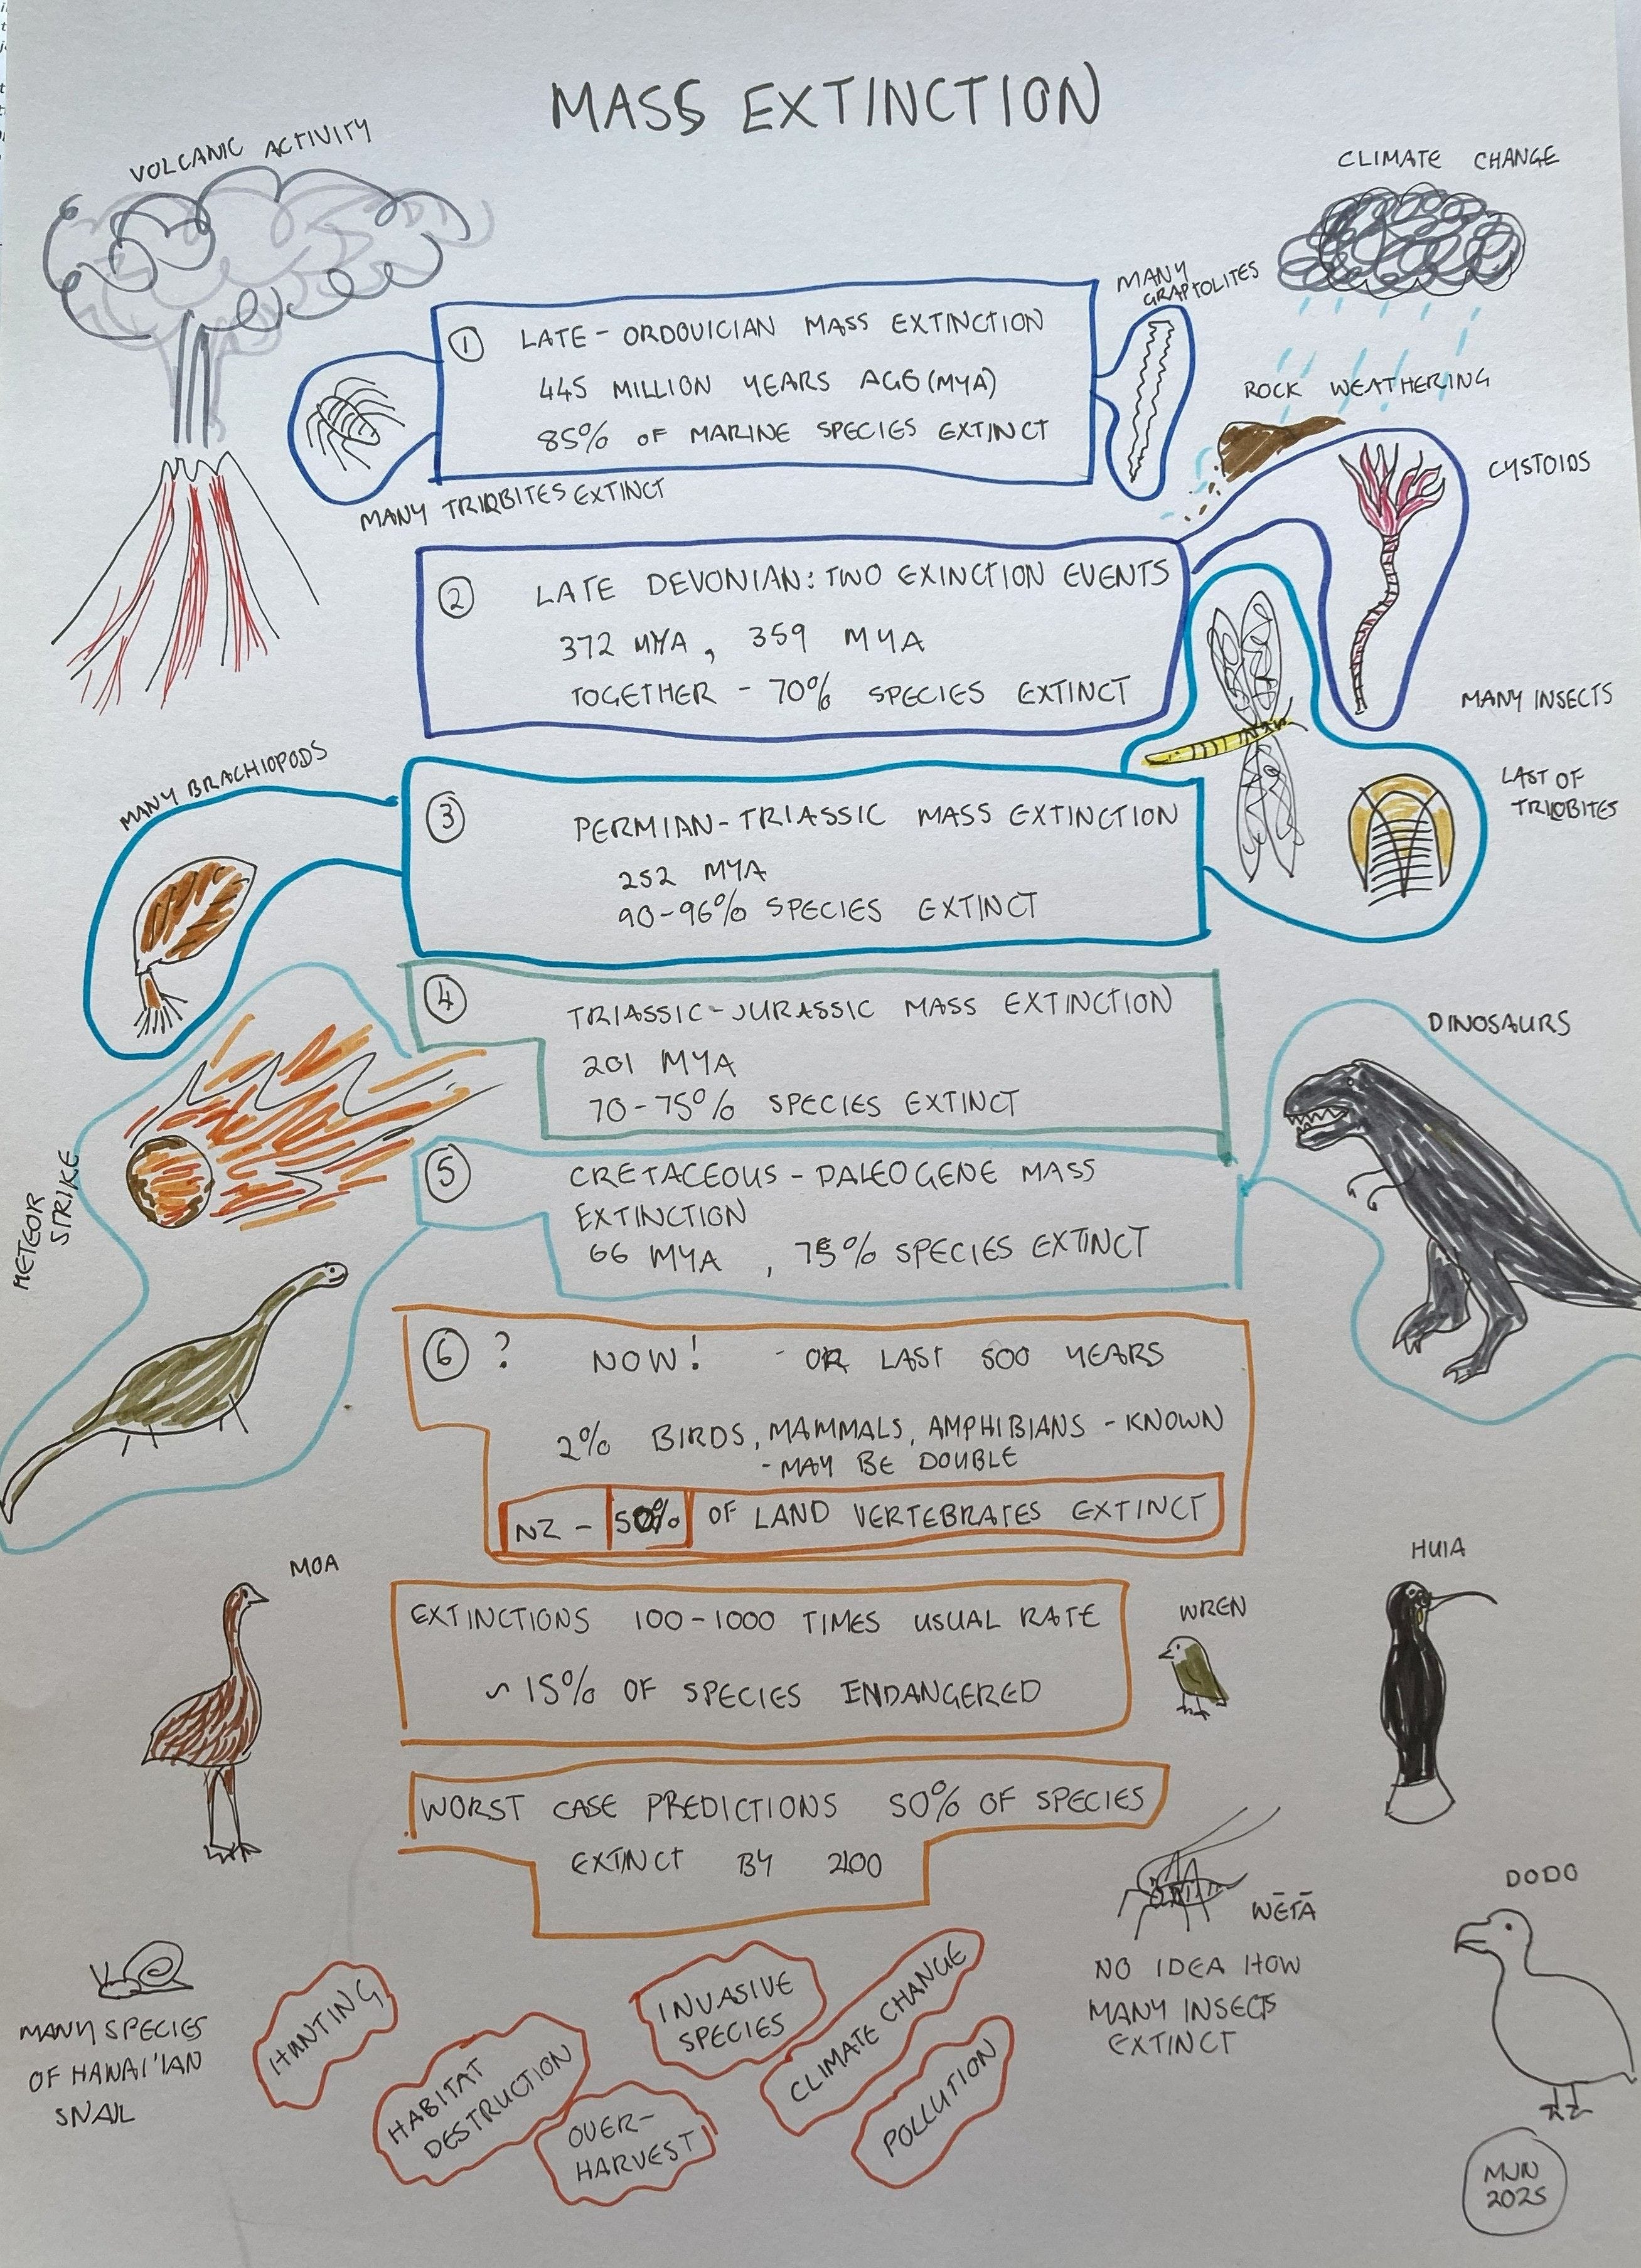 MASS EXTINCTION
VOLCANIC ACTIVITY
CLIMATE CHANGE
MANY
GRAPTOLITES
1 LATE - ORDOVICIAN MASS EXTINCTION
445 MILLION YEARS AGO (MYA)
85% OF MARINE SPECIES EXTINCT
ROCK WEATHERING
MANY TRIOBITES EXTINCT
CYSTOIDS
2 LATE DEVONIAN: TWO EXINCTION EVENTS
372 MYA, 359 MYA
TOGETHER - 70% SPECIES EXTINCT
MANY INSECTS
MANY BRACHIOPODS
LAST OF
TRIOBITES
3 PERMIAN-TRIASSIC MASS EXTINCTION
252 MYA
90-96% SPECIES EXTINCT
4 TRIASSIC-JURASSIC MASS EXTINCTION
201 MYA
70-75% SPECIES EXTINCT
DINOSAURS
METEOR
STRIKE
5 CRETACEOUS - PALEOGENE MASS
EXTINCTION
66 MYA, 75% SPECIES EXTINCT
6 ? NOW! - OR LAST 500 YEARS
2% BIRDS, MAMMALS, AMPHIBIANS - KNOWN
- MAY BE DOUBLE
NZ - 50% OF LAND VERTEBRATES EXTINCT
MOA
HUIA
EXTINCTIONS 100-1000 TIMES USUAL RATE
~ 15% OF SPECIES ENDANGERED
WREN
WORST CASE PREDICTIONS 50% OF SPECIES
EXTINCT BY 2100
WĒTĀ
NO IDEA HOW
MANY INSECTS
EXTINCT
DODO
MANY SPECIES
OF HAWAI'IAN
SNAIL
HUNTING
HABITAT
DESTRUCTION
OVER-
HARVEST
INVASIVE
SPECIES
CLIMATE CHANGE
POLLUTION
MJN
2025